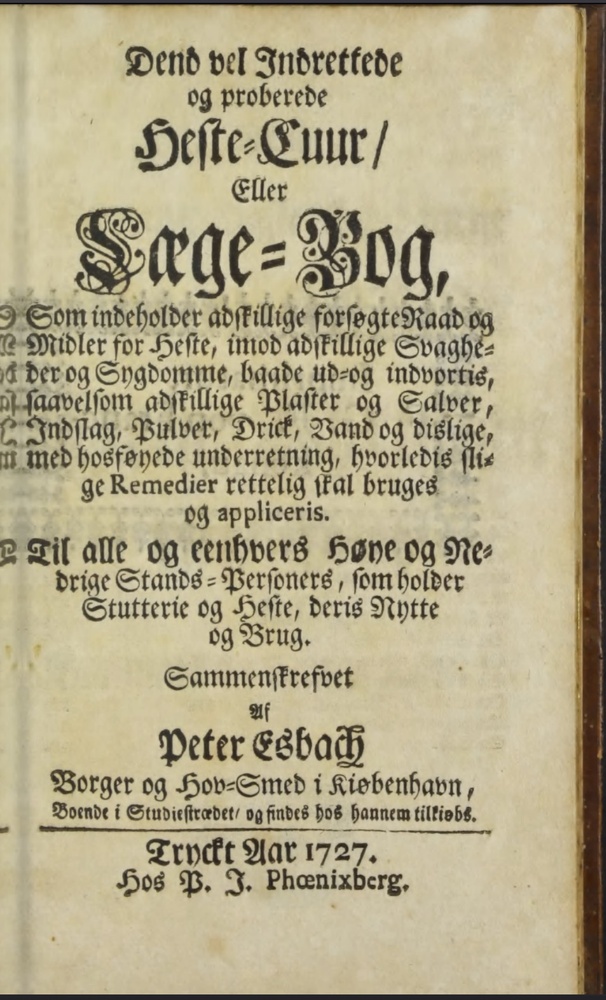 Dend vel Indrettede
og proberede
Heste-Cuur/
Eller
Læge-Bog,
Som indeholder adskillige forsøgte Raad og
Midler for Heste, imod adskillige Svaghe-
der og Sygdomme, baade ud-og indvortis,
saavelsom adskillige Plaster og Salver,
Indslag, Pulver, Drick, Vand og dislige,
med hosføyede underretning, hvorledis sli-
ge Remedier rettelig skal bruges
og appliceris.
Til alle og eenhvers Høye og Ne-
drige Stands-Personers, som holder
Stutterie og Heste, deris Nytte
og Brug.
Sammenskrefvet
Af
Peter Esbach
Borger og Hov-Smed i Kiøbenhavn,
Boende i Studiestrædet/ og findes hos hannem tilkiøbs.
Tryckt Aar 1727.
Hos P. J. Phœnixberg.